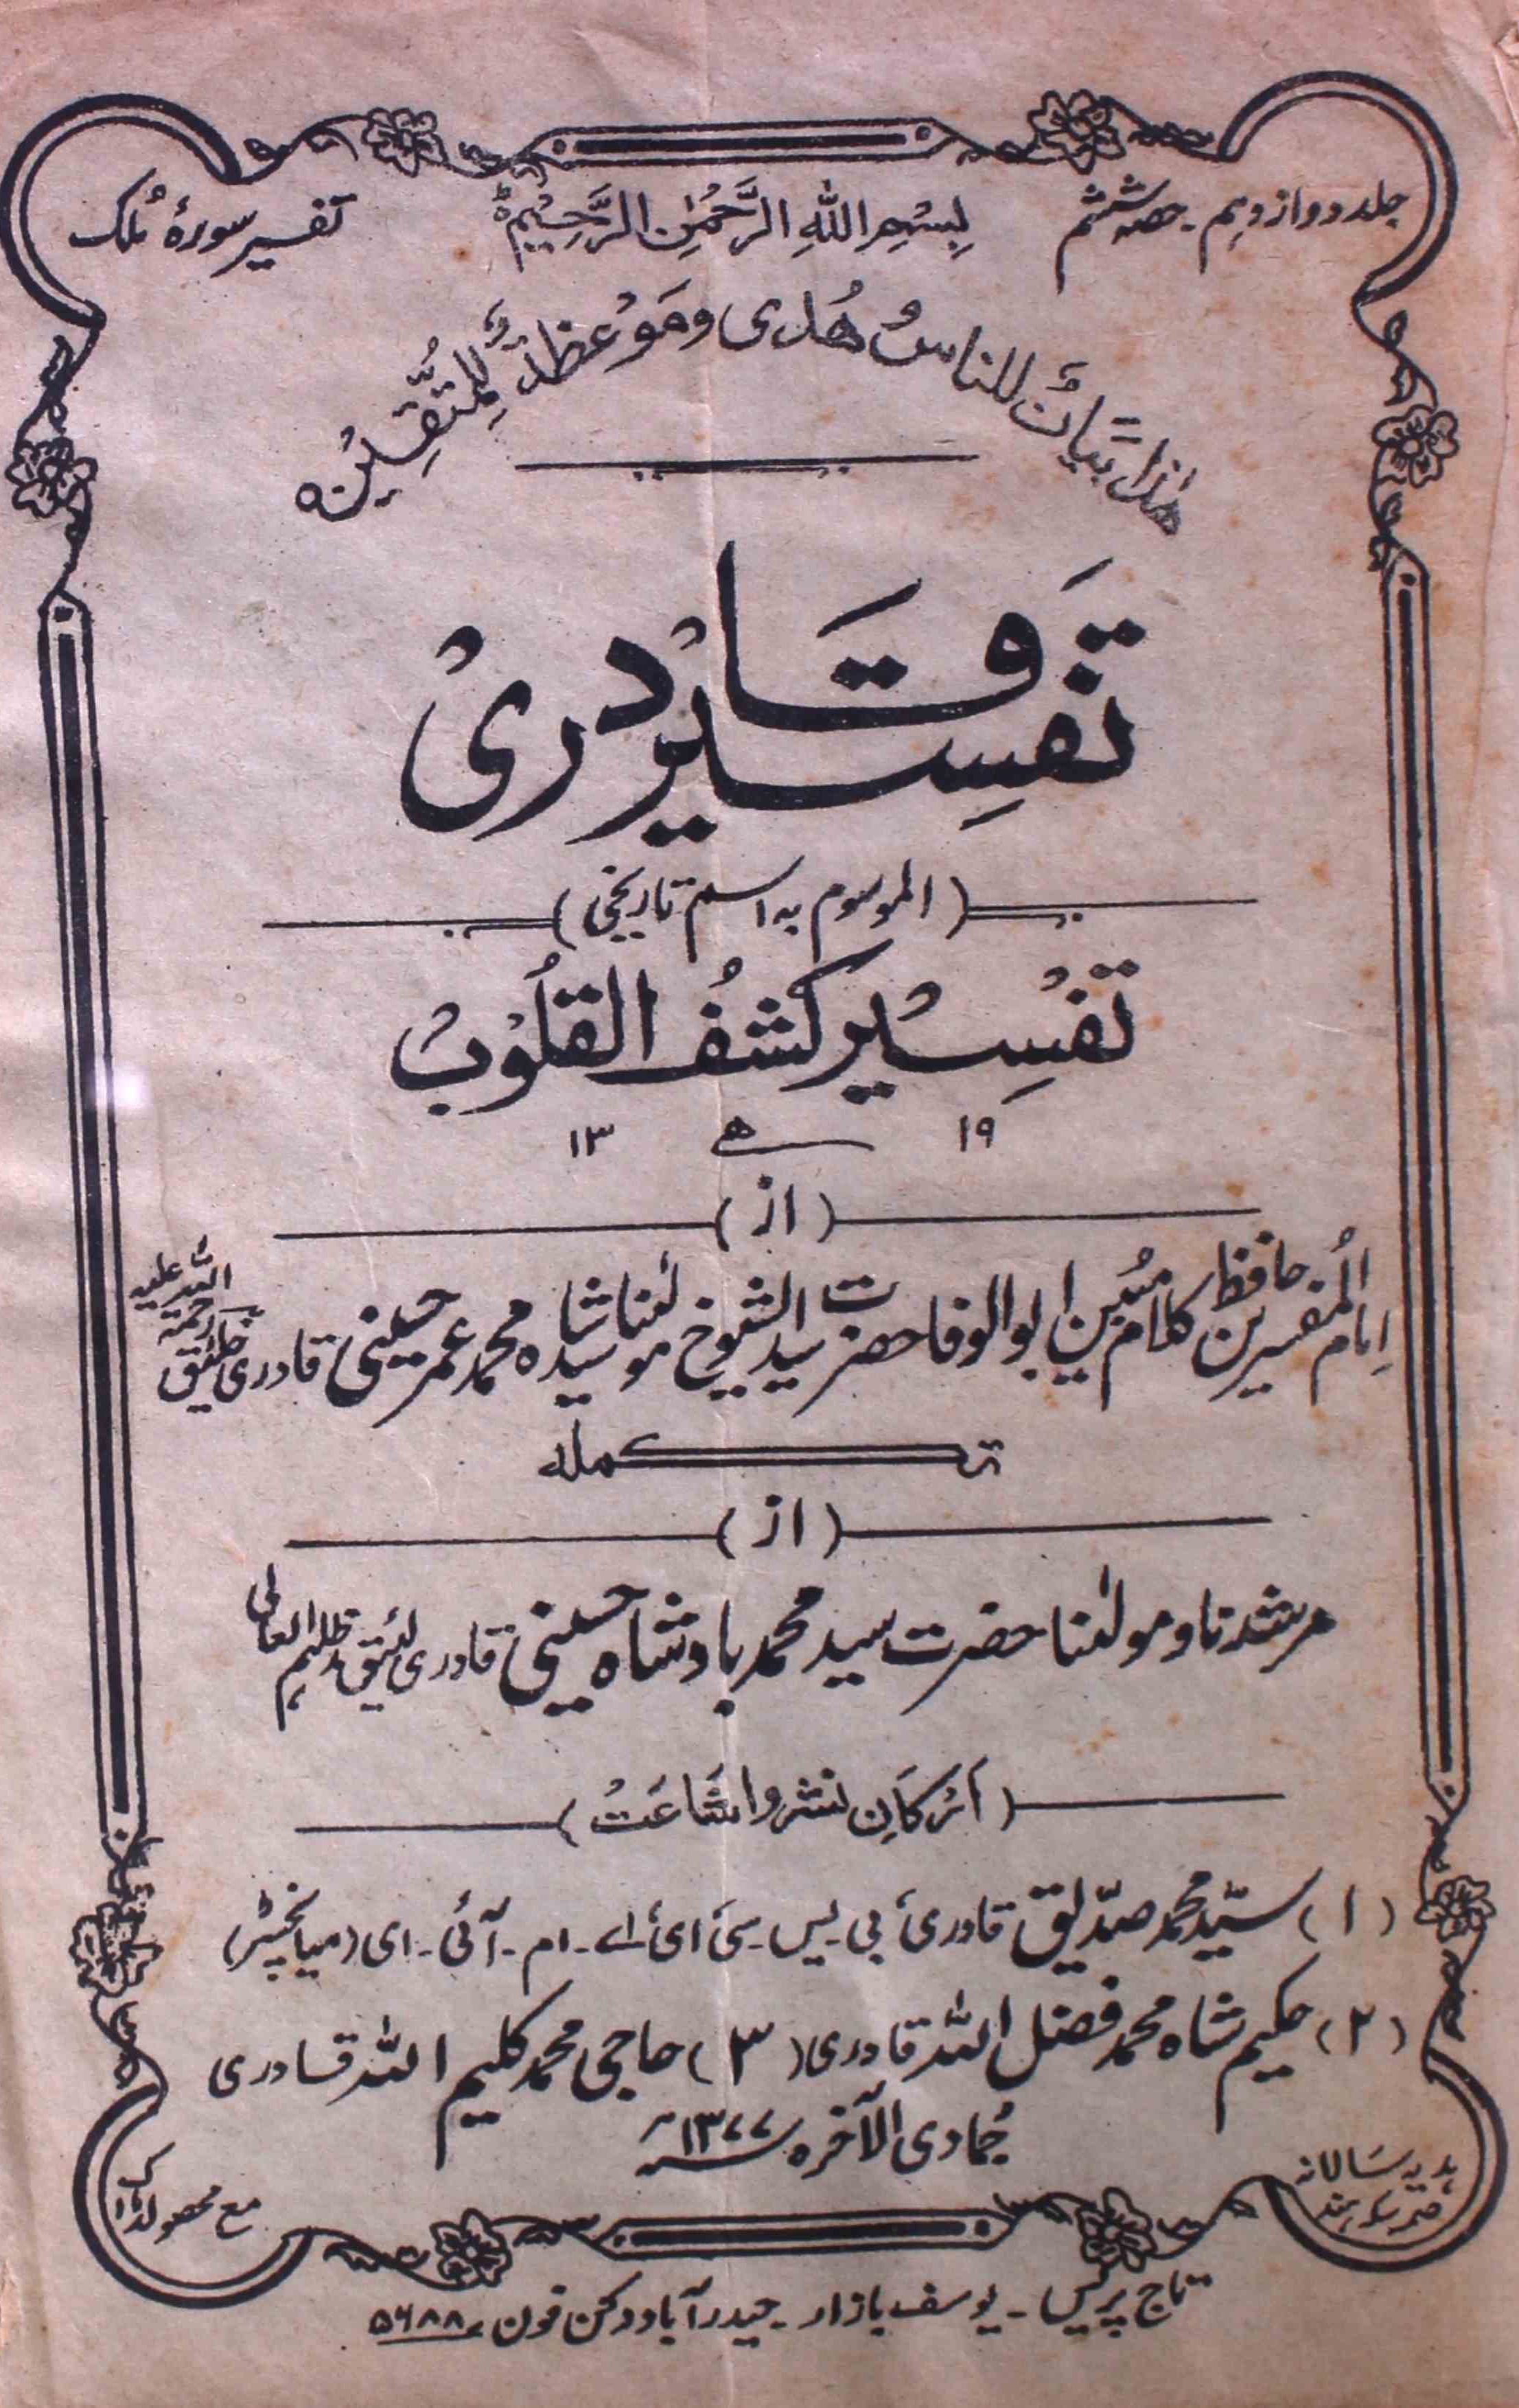 جلد دوازدہم۔ حصہ ششم
بِسْمِ اللهِ الرَّحْمٰنِ الرَّحِيْمِ
تفسیر سورۂ مُلک
هٰذا بَيَانٌ للناسِ وهُدى ومَوْعِظةٌ لِلْمُتَّقِيْن
تَفسِیر قَادری
(الموسوم بہ اسم تاریخی)
تَفْسِیْر کَشْفُ القُلُوْبْ
۱۹ ھ ۱۳
(از)
اِمام المُفسرین حافظ کلام مُبین ابوالوفا حضرت سید الشیوخ مولٰنا سید شاہ محمد عمر حسینی قادری خلیقؔ رحمۃ اللہ علیہ
تکملہ
(از)
مرشدنا و مولٰنا حضرت سید محمد بادشاہ حسینی قادری لئیقؔ مدظلہم العالی
(اَرْکَانِ نشر و اشَاعَتْ)
(۱) سیّد محمد صدّیق قادری بی۔یس۔سی ای اے۔ام۔آئی۔ای (میسا نچسٹر)
(۲) حکیم شاہ محمد فضل اللہ قادری (۳) حاجی محمد کلیم اللہ قادری
جُمادی الآخرہ ۱۳۷۷ھ
ہدیہ سَالانہ
مع محصولڈاک
تاج پریس۔ یوسف بازار۔ حیدرآباد دکن فون ۵۶۸۸